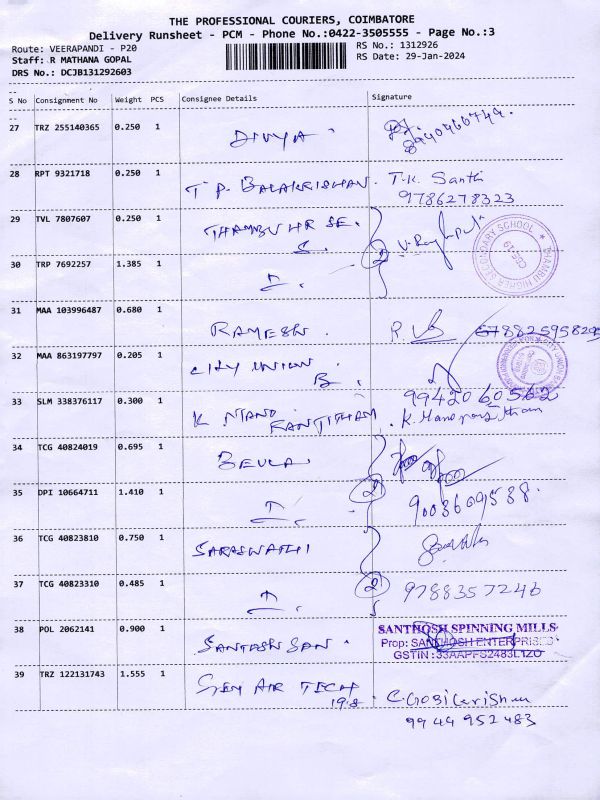 THE PROFESSIONAL COURIERS, COIMBATORE
Delivery Runsheet - PCM - Phone No.:0422-3505555 - Page No.:3
Route: VEERAPANDI - P20
RS No.: 1312926
Staff: R MATHANA GOPAL
RS Date: 29-Jan-2024
DRS No.: DCJB131292603
S No Consignment No Weight PCS Consignee Details Signature
27 TRZ 255140365 0.250 1 DIVYA. 8940466749.
28 RPT 9321718 0.250 1 T P. BALAKRISHAN. T.K. Santhi
9786278323
29 TVL 7807607 0.250 1 THAMBU HR SE.
S.
2
30 TRP 7692257 1.385 1
THAMBU HIGHER SECONDARY SCHOOL
CBE-19
31 MAA 103996487 0.680 1 RAMESH.
32 MAA 863197797 0.205 1 CITY UNION
B.
9942060562
33 SLM 338376117 0.300 1 K
34 TCG 40824019 0.695 1 BEULA
2
35 DPI 10664711 1.410 1 9003609538.
36 TCG 40823810 0.750 1 SARASWATHI
2
37 TCG 40823310 0.485 1 9788357246
38 POL 2062141 0.900 1 SANTOSH SAN.
SANTHOSH SPINNING MILLS
Prop: SANTHOSH ENTERPRISES
GSTIN :33AAPFS2483L1ZO
39 TRZ 122131743 1.555 1 AIR TECH
19.8
9944952483